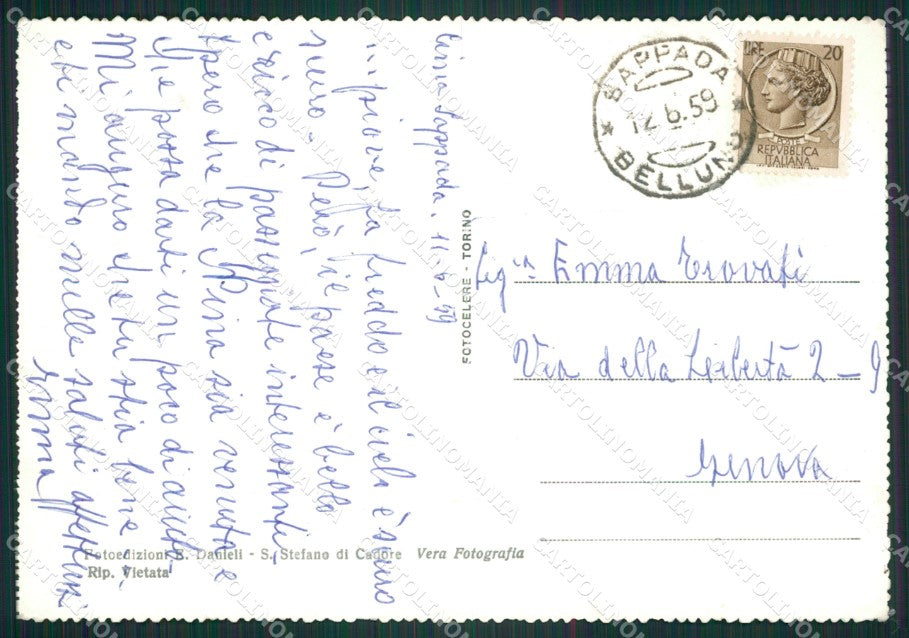 Cima Sappada. 11-6-59
... piove, fa freddo e il cielo è scuro
scuro. Però, il paese è bello
e ricco di passeggiate interessanti
Spero che la Nina sia venuta e
che possa darti un poco di aiuto.
Mi auguro che tu stia bene
e ti mando mille saluti affettuosi
Emma
SAPPADA
12.6.59
BELLUNO
LIRE 20
REPVBBLICA
ITALIANA
FOTOCELERE - TORINO
Sig.na Emma Trovati
Via della Libertà 2-9
Genova
Fotoedizioni E. Danieli - S. Stefano di Cadore Vera Fotografia
Rip. Vietata
CARTOLINOMANIA